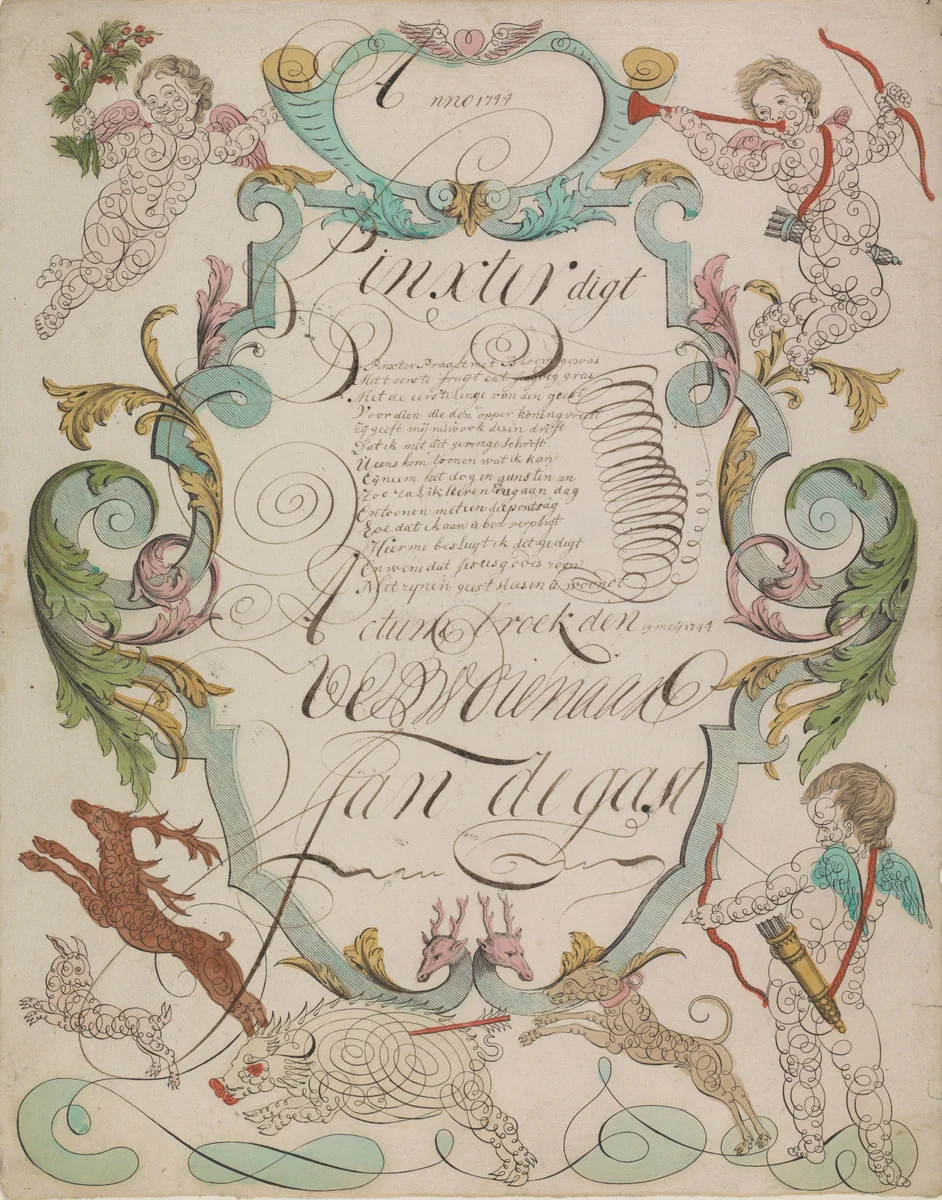 Anno 1744
Pinxter digt
Pinxter Praalt met Bloemgewas
Met eerste fruijt ent gras
Met de eerstelinge van den geest
Voor dien die den opper koning vreest
Zij geeft mij nu ook desen drift
Dat ik met dit geringe schrift
U eens kom toonen wat ik kan
Eij neem het dog in gunsten an
Zoo zal ik leven dag aan dag
En toonen met een diep ontsag
Hoe dat ik aan u ben verpligt
Hier me besluijt ik dit gedigt
En wens dat Jesus godes zoon
Met zijnen geest steets in u woont
Actum broek den 19 meij 1744
Jan de gast